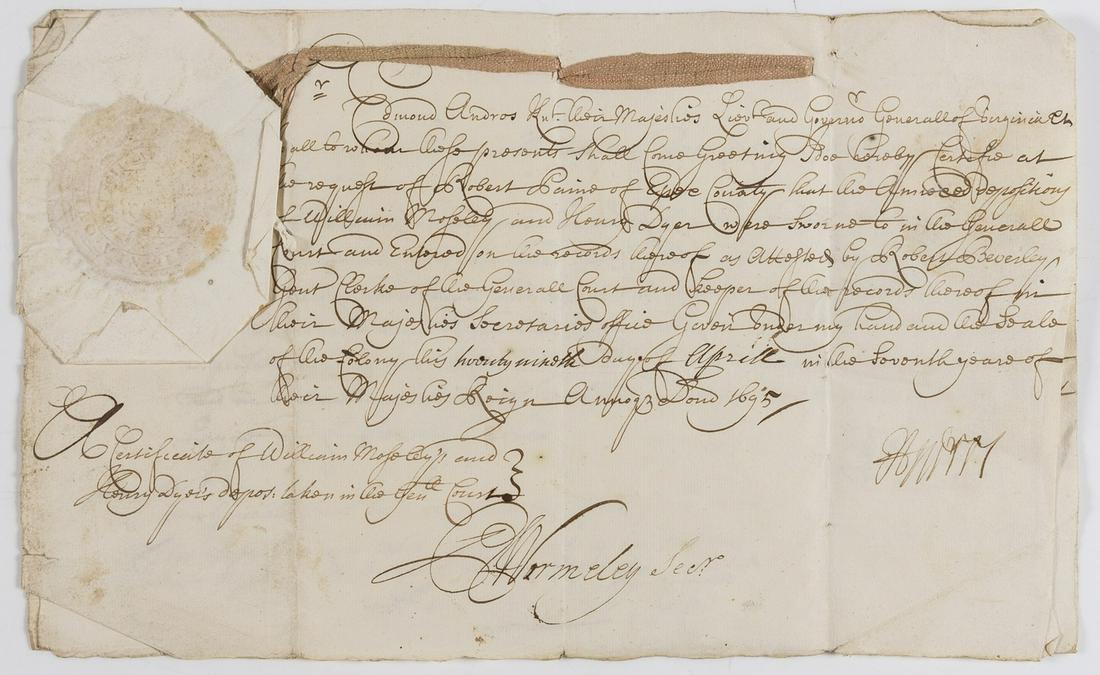 r
Edmond Andros Knt. their Majesties Lievt. and Governr Generall of Virginia &c
all to whom these presents shall Come Greeting I doe hereby Certifie at
request of Robert Paine of Essex County that the Annexed depositions
William Moseley and Henry Dyer were Sworne to in the Generall
Court and Entered on the records thereof as Attested by Robert Beverley
Gent Clerke of the Generall Court and keeper of the records thereof in
their Majesties Secretaries office Given under my hand and the Seale
of the Colony this twenty nineth day of Aprill in the Seventh yeare of
their Majesties Reign Annoq3 Dom 1695
A Certificate of William Moseleys and
Henry Dyers depos: taken in the Genll Court
Wormeley Secr